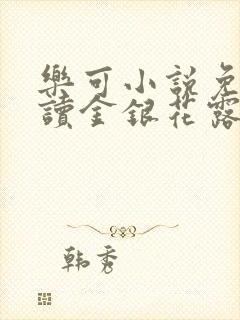 樂可小說免
讀金銀花露
韩秀